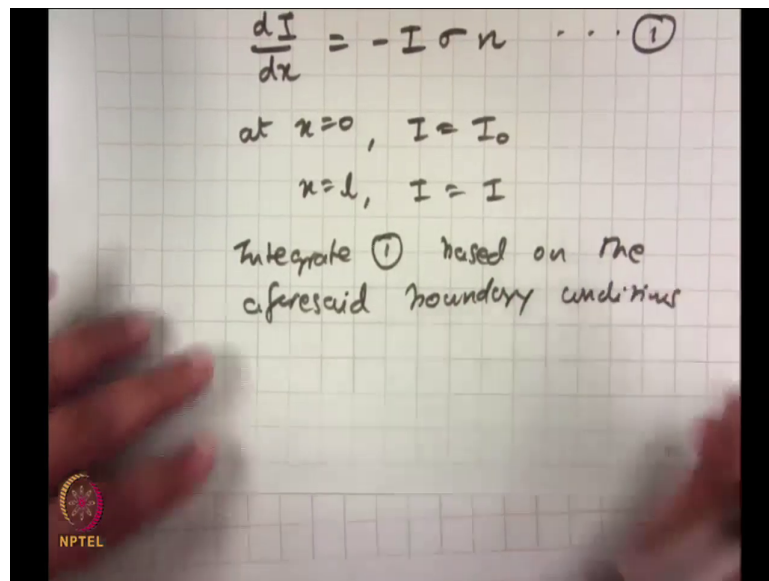 dI/dx = - I σ n ... ①
at x=0, I = I₀
x=l, I = I
Integrate ① based on the
aforesaid boundary conditions
NPTEL